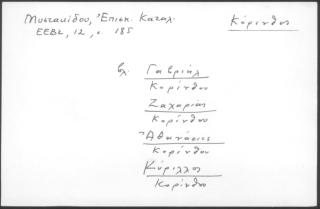 Μυστακίδου, Ἐπισκ. Καταλ.
ΕΕΒΣ, 12, σ. 185
Κόρινθος
βλ. Γαβριήλ
Κορίνθου
Ζαχαρίας
Κορίνθου
Ἀθανάσιος
Κορίνθου
Κύριλλος
Κορίνθου